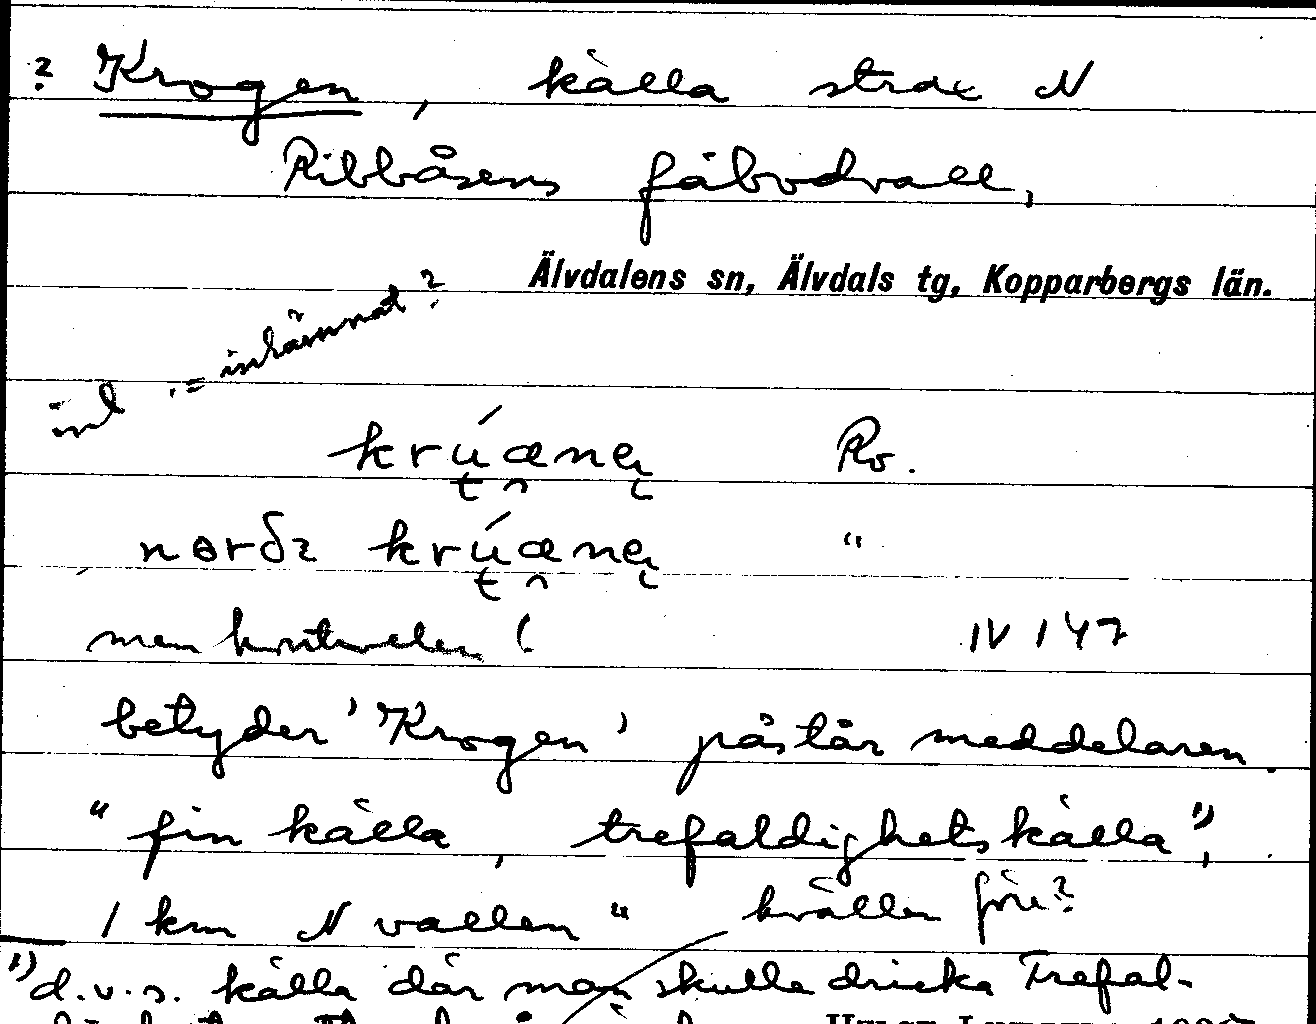 ? Krogen, källa strax N
Ribbåsens fäbodvall,
Älvdalens sn, Älvdals tg, Kopparbergs län.
= inhämnat?
krúæne Ro.
nørðɩ krúæne "
men kontrollen! IV 147
betyder 'Krogen' påstår meddelaren.
"fin källa, trefaldighetskälla",¹⁾
1 km N vallen" kvällen före?
¹⁾ d.v.s. källa där man skulle dricka Trefal-